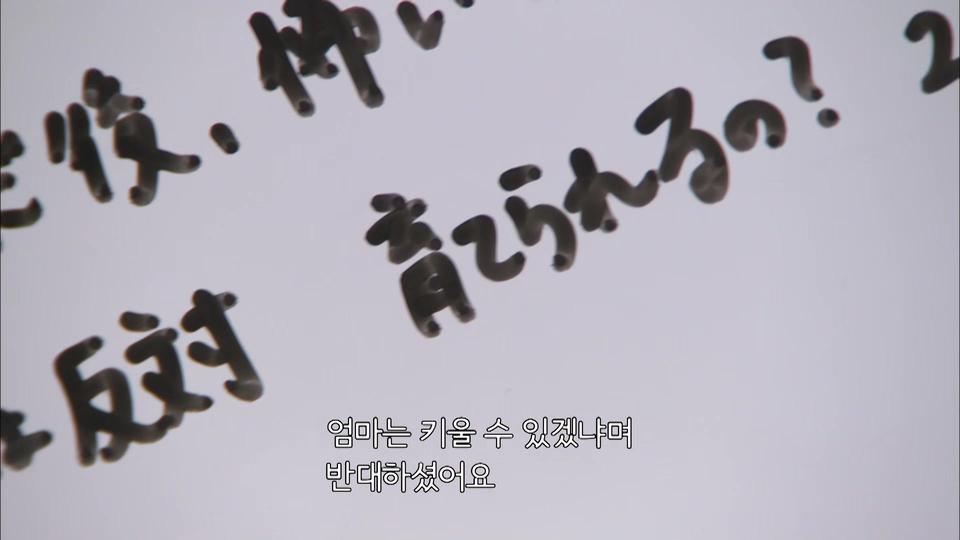 後、怖い
育てられるの?
反対
엄마는 키울 수 있겠냐며
반대하셨어요